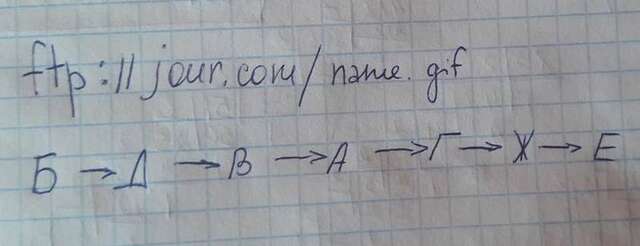 ftp://jour.com/name.gif
Б → Д → В → А → Г → Ж → Е